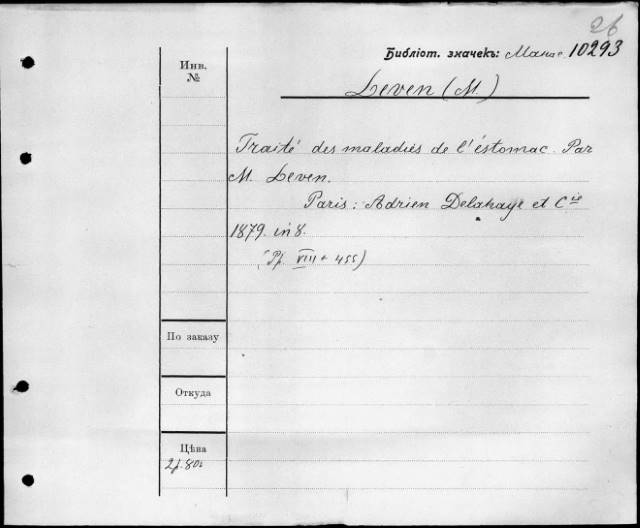 26
Библіот. значекъ: 10293
Инв.
№
Leven (M.)
Traité des maladies de l'éstomac. Par
M. Leven.
Paris: Adrien Delahaye et Cie
1879. in 8.
(Pp. VIII + 455)
По заказу
Откуда
Цѣна